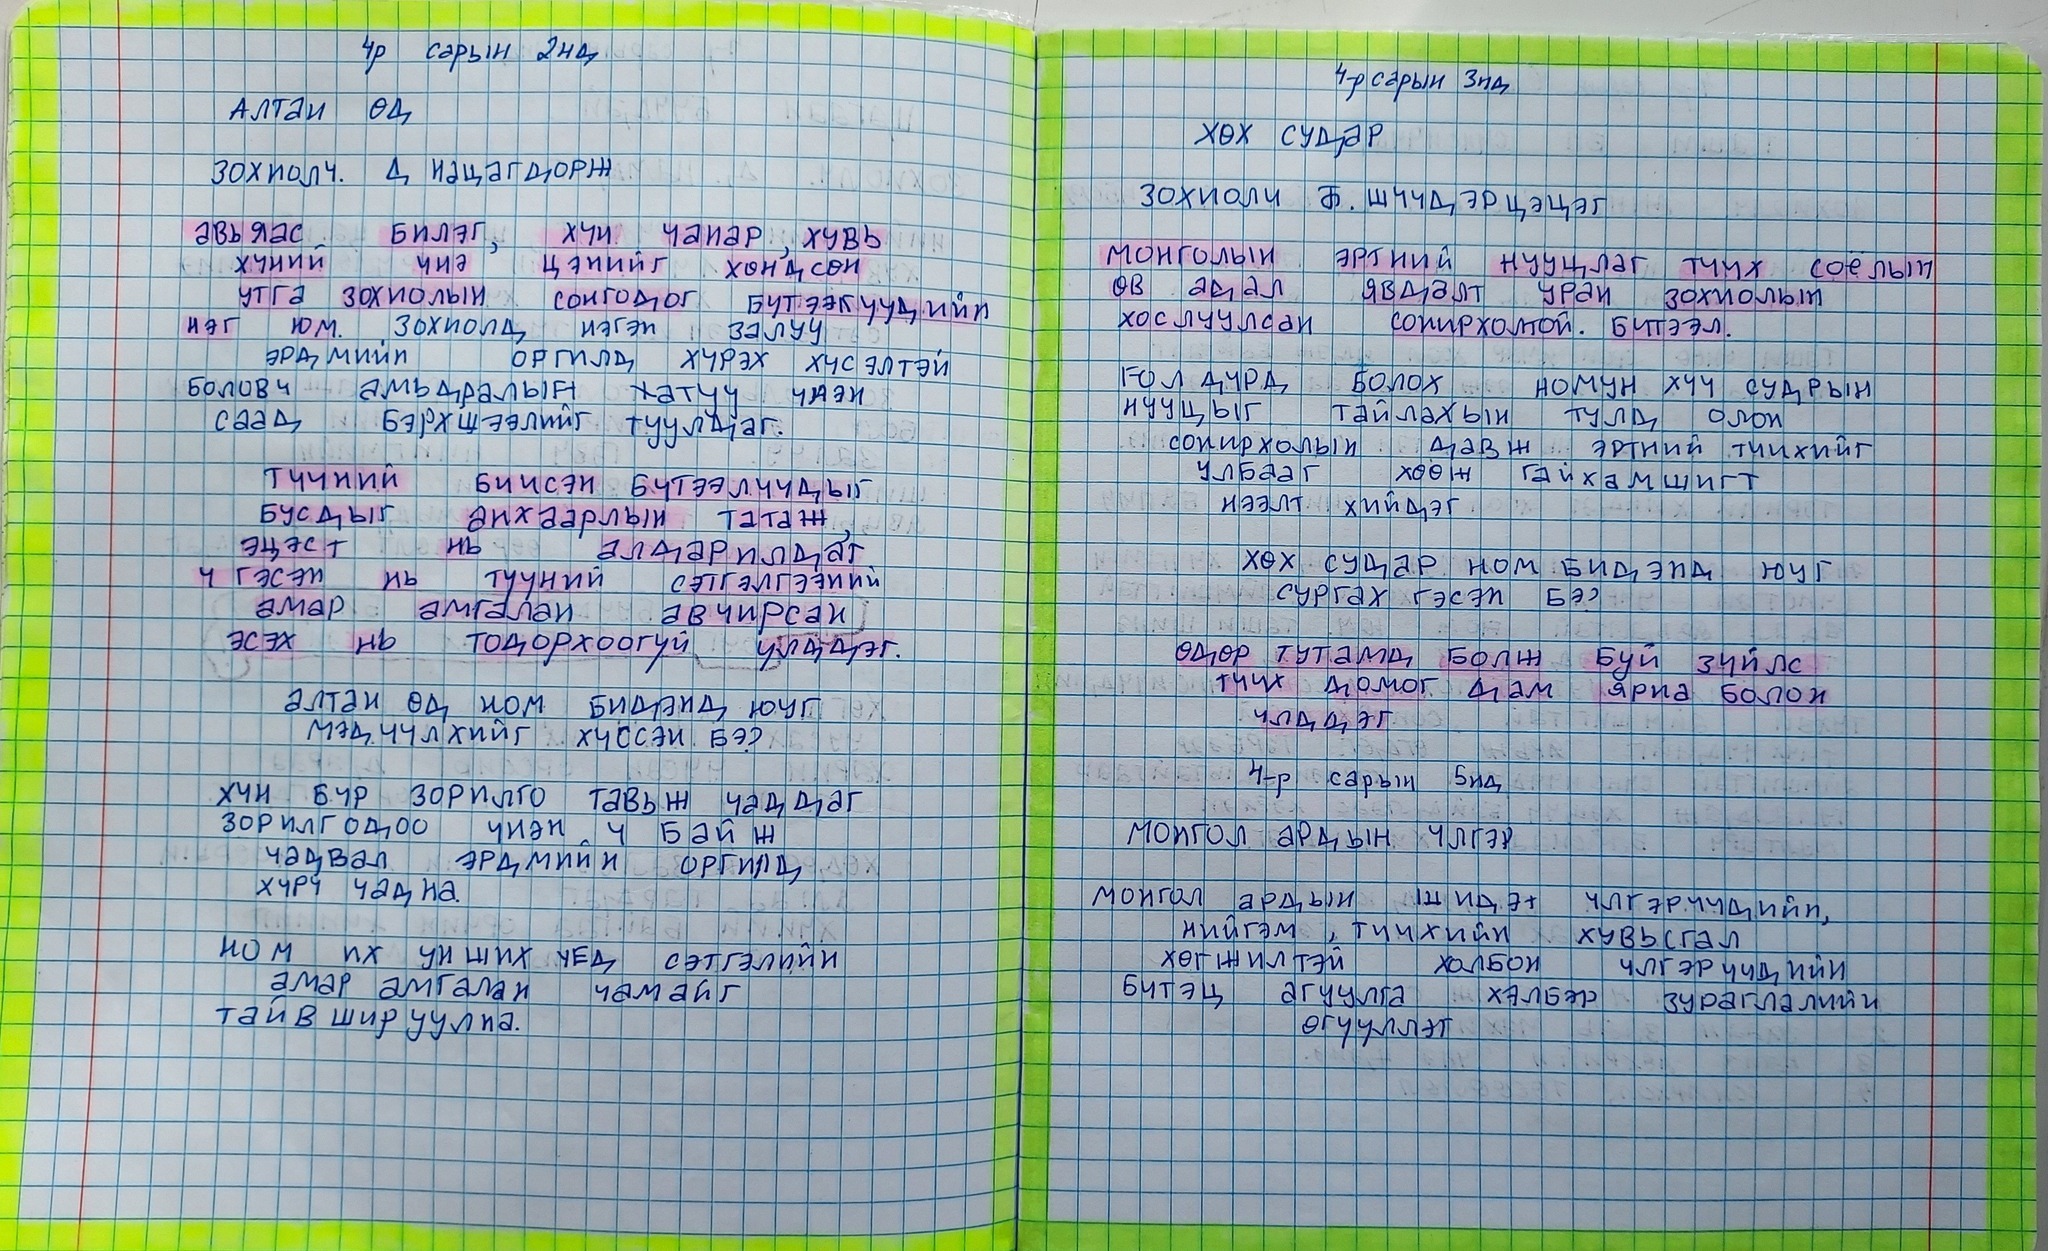 4р сарын 2нд
АЛТАН ӨД
ЗОХИОЛЧ. Д НАЦАГДОРЖ
АВЬЯАС БИЛЭГ, ХҮН ЧАНАР, ХУВЬ
ХҮНИЙ ҮНЭ ЦЭНИЙГ ХӨНДСӨН
УТГА ЗОХИОЛЫН СОНГОДОГ БҮТЭЭКҮҮДИЙН
НЭГ ЮМ. ЗОХИОЛД НЭГЭН ЗАЛУУ
ЭРДМИЙН ОРГИЛД ХҮРЭХ ХҮСЭЛТЭЙ
БОЛОВЧ АМЬДРАЛЫН ХАТУУ ҮНЭН
СААД БЭРХШЭЭЛИЙГ ТУУЛДАГ.
ТҮҮНИЙ БИЧСЭН БҮТЭЭЛҮҮДЫГ
БУСДЫГ АНХААРЛЫН ТАТАЖ,
ЭЦЭСТ НЬ АЛДАРИЛДАГ
Ч ГЭСЭН НЬ ТҮҮНИЙ СЭТГЭЛГЭЭНИЙ
АМАР АМГАЛАН АВЧИРСАН
ЭСЭХ НЬ ТОДОРХООГҮЙ ҮЛДДЭГ.
АЛТАН ӨД НОМ БИДЭНД ЮУГ
МЭДҮҮЛХИЙГ ХҮССЭН БЭ?
ХҮН БҮР ЗОРИЛГО ТАВЬЖ ЧАДДАГ
ЗОРИЛГОДОО ҮНЭН Ч БАЙЖ
ЧАДВАЛ ЭРДМИЙН ОРГИЛД
ХҮРЧ ЧАДНА.
НОМ ИХ УНШИХ ҮЕД СЭТГЭЛИЙН
АМАР АМГАЛАН ЧАМАЙГ
ТАЙВШИРУУЛНА.
4-р сарын 3нд
ХӨХ СУДАР
ЗОХИОЛЧ Б. ШҮҮДЭРЦЭЦЭГ
МОНГОЛЫН ЭРТНИЙ НУУЦЛАГ ТҮҮХ СОЁЛЫН
ӨВ АДАЛ ЯВДАЛТ УРАН ЗОХИОЛЫН
ХОСЛУУЛСАН СОНИРХОЛТОЙ. БҮТЭЭЛ.
ГОЛ ДҮРД БОЛОХ НОМУН ХҮҮ СУДРЫН
НУУЦЫГ ТАЙЛАХЫН ТУЛД ОЛОН
СОНИРХОЛЫН ДАВЖ ЭРТНИЙ ТҮҮХИЙГ
УЛБААГ ХӨӨЖ ГАЙХАМШИГТ
НЭЭЛТ ХИЙДЭГ
ХӨХ СУДАР НОМ БИДЭНД ЮУГ
СУРГАХ ГЭСЭН БЭ?
ӨДӨР ТУТАМД БОЛЖ БУЙ ЗҮЙЛС
ТҮҮХ ДОМОГ ДАМ ЯРИА БОЛОН
ҮЛДДЭГ
4-р сарын 5нд
МОНГОЛ АРДЫН ҮЛГЭР
МОНГОЛ АРДЫН ШИДЭТ ҮЛГЭРҮҮДИЙН,
НИЙГЭМ, ТҮҮХИЙН ХУВЬСГАЛ
ХӨГЖИЛТЭЙ ХОЛБОН ҮЛГЭРҮҮДИЙН
БҮТЭЦ АГУУЛГА ХЭЛБЭР ЗУРАГЛАЛИЙН
ӨГҮҮЛЛЭГ